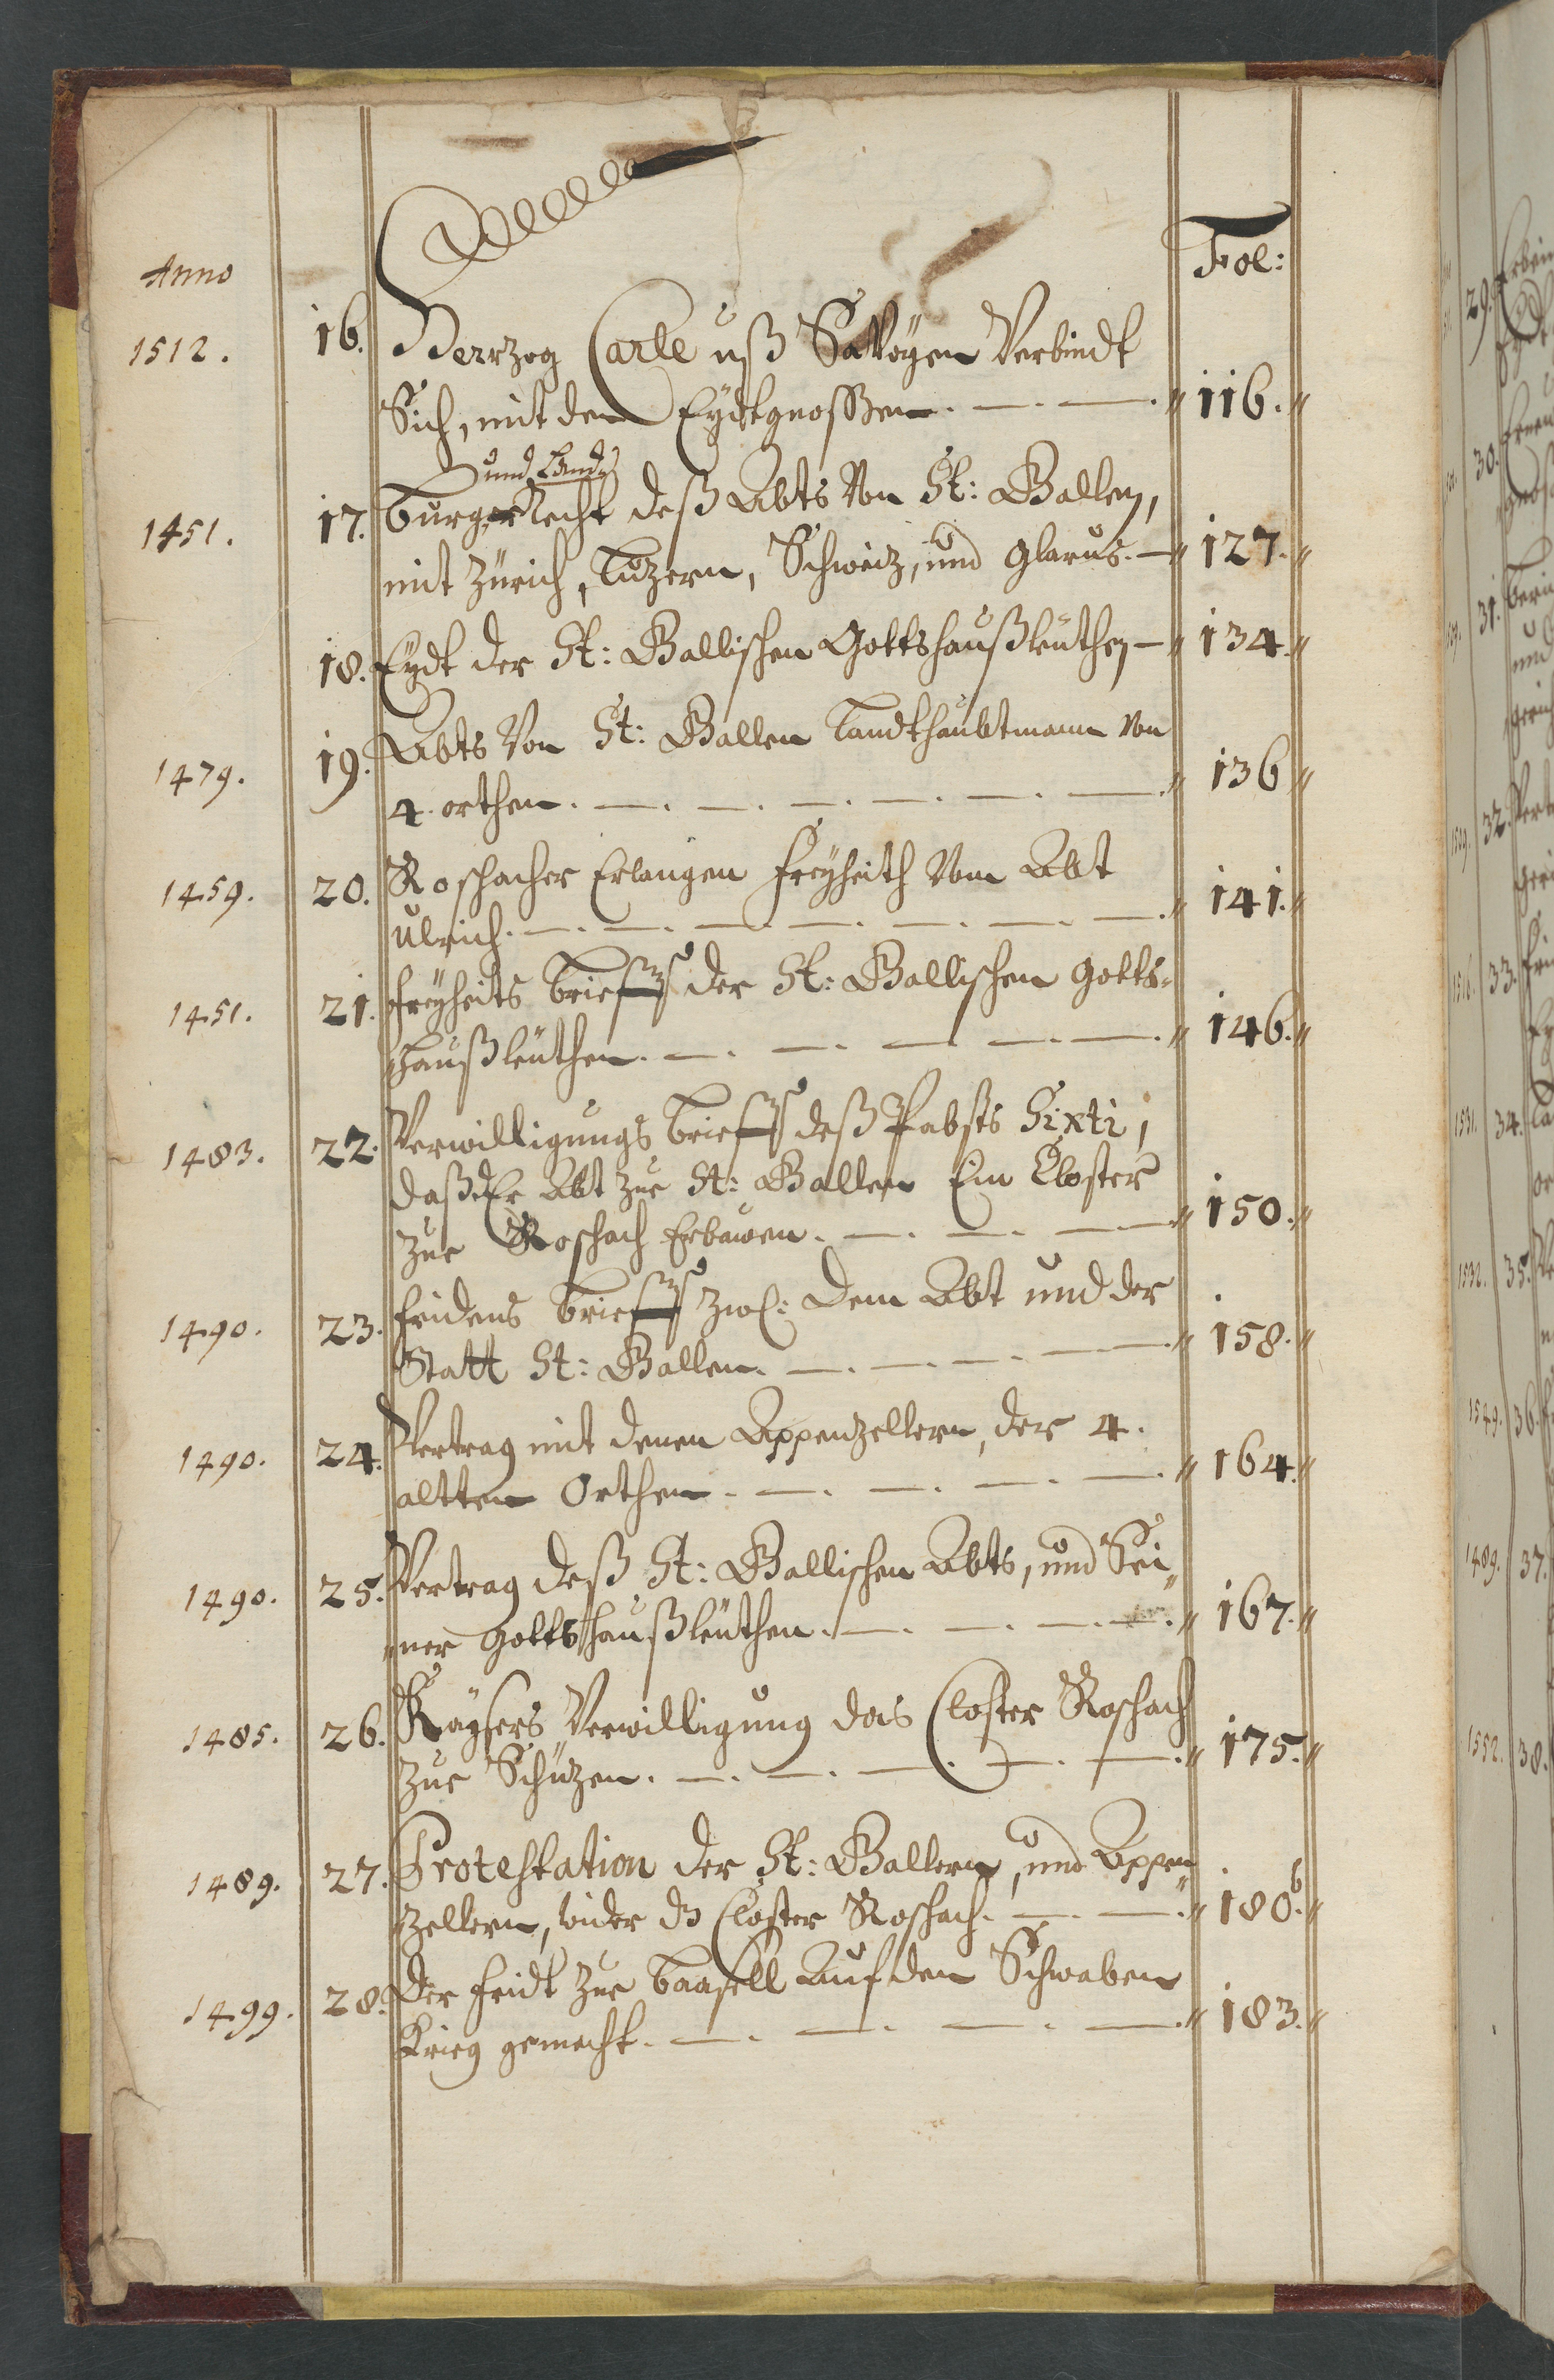 Fol:
Anno
1512. 16. Herrzog Carle uß Savoÿen Verbindt
Sich, mit den Eÿdtgnossen. 116.
und Landt
1451. 17. Burger Recht deß Abts Von St: Gallen,
mit Zürich, Luzern, Schweiz, und Glarus. 127.
18. Eÿdt der St: Gallischen Gottshaußleüthen 134.
1479. 19. Abts Von St: Gallen Landtshaubtmann Von
4. orthen. 136
1459. 20. Roschacher Erlangen Freÿheith Vom Abt
Ulrich. 141.
1451. 21. Freÿheits Brieff der St: Gallischen Gotts-
haußleüthen. 146.
1483. 22. Verwilligungs Brieff deß Pabsts Sixti,
daß der Abt zue St: Gallen Ein Closter
zue Roschach Erbauwen. 150.
1490. 23. Fridens Brieff zwß: dem Abt und der
Statt St: Gallen. 158.
1490. 24. Vertrag mit denen Appenzellern, der 4.
altten Orthen. 164.
1490. 25. Vertrag deß St: Gallischen Abts, und Sei„
„ner Gottshaußleüthen. 167.
1485. 26. Kaÿsers Verwilligung das Closter Roschach
zue Schüzen. 175.
1489. 27. Protestation der St: Gallern, und Appen„
zellern, wider ds Closter Roschach. 180b.
1499. 28. Der Fridt zue Baasell Auf den Schwaben
Krieg gemacht. 183.
29.
30.
31.
1529. 32.
1516. 33.
1531. 34.
1532. 35.
1549. 36.
1489. 37.
1552. 38.